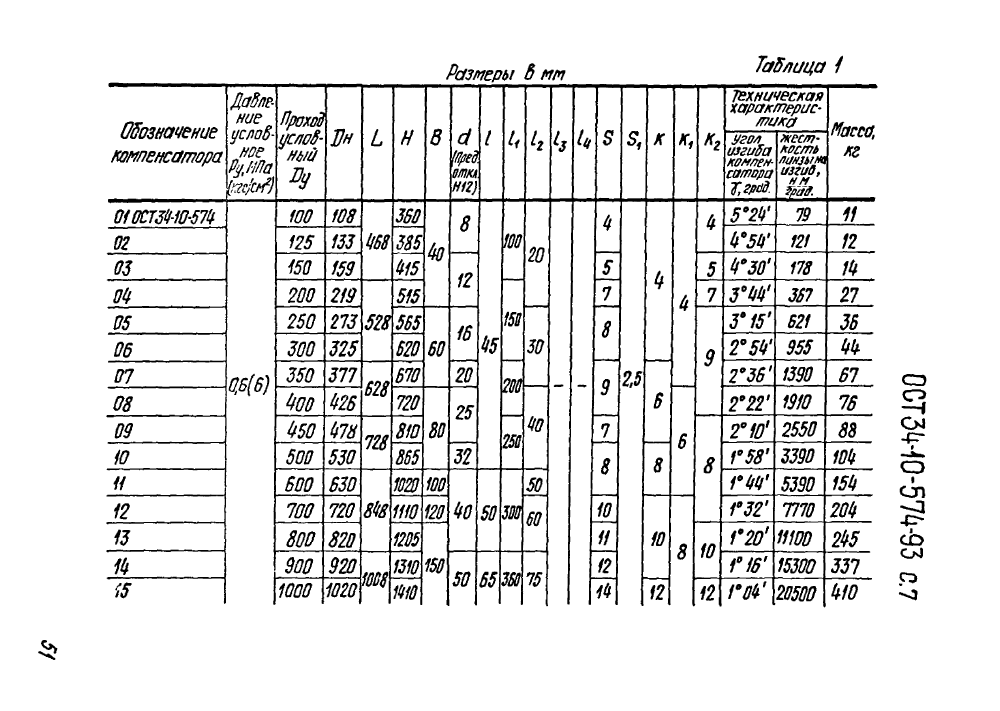 Размеры в мм
Таблица 1
Обозначение компенсатора | Давление условное Ру, МПа (кгс/см²) | Проход условный Dу | Dн | L | H | B | d (Пред. откл. H12) | l | l₁ | l₂ | l₃ | l₄ | S | S₁ | K | K₁ | K₂ | Техническая характеристика | Масса, кг
угол изгиба компенсатора γ, град. | жесткость линзы на изгиб, н м град.
01 ОСТ34-10-574 | 0,6(6) | 100 | 108 | 468 | 360 | 40 | 8 | 45 | 100 | 20 | – | – | 4 | 2,5 | 4 | 4 | 4 | 5°24' | 79 | 11
02 | 125 | 133 | 385 | 4°54' | 121 | 12
03 | 150 | 159 | 415 | 12 | 5 | 5 | 4°30' | 178 | 14
04 | 200 | 219 | 528 | 515 | 150 | 7 | 7 | 3°44' | 367 | 27
05 | 250 | 273 | 565 | 60 | 16 | 30 | 8 | 9 | 3°15' | 621 | 36
06 | 300 | 325 | 620 | 2°54' | 955 | 44
07 | 350 | 377 | 628 | 670 | 20 | 200 | 9 | 6 | 2°36' | 1390 | 67
08 | 400 | 426 | 720 | 80 | 25 | 40 | 6 | 2°22' | 1910 | 76
09 | 450 | 478 | 728 | 810 | 250 | 7 | 8 | 2°10' | 2550 | 88
10 | 500 | 530 | 865 | 32 | 8 | 8 | 1°58' | 3390 | 104
11 | 600 | 630 | 848 | 1020 | 100 | 40 | 50 | 300 | 50 | 1°44' | 5390 | 154
12 | 700 | 720 | 1110 | 120 | 60 | 10 | 10 | 8 | 1°32' | 7770 | 204
13 | 800 | 820 | 1205 | 150 | 11 | 10 | 1°20' | 11100 | 245
14 | 900 | 920 | 1008 | 1310 | 50 | 65 | 360 | 75 | 12 | 1°16' | 15300 | 337
15 | 1000 | 1020 | 1410 | 14 | 12 | 12 | 1°04' | 20500 | 410
ОСТ34-10-574-93 с.7
51